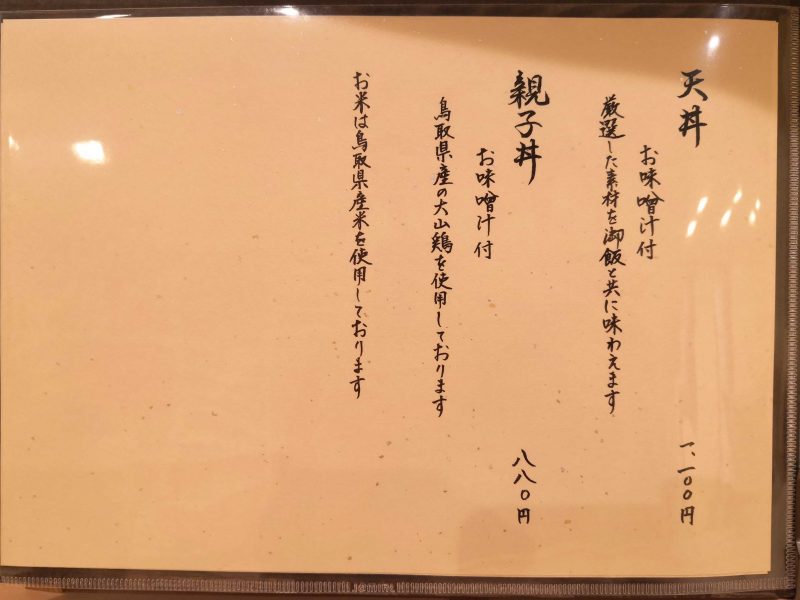 天丼
お味噌汁付
厳選した素材を御飯と共に味わえます
一、一〇〇円
親子丼
お味噌汁付
鳥取県産の大山鶏を使用しております
八八〇円
お米は鳥取県産米を使用しております